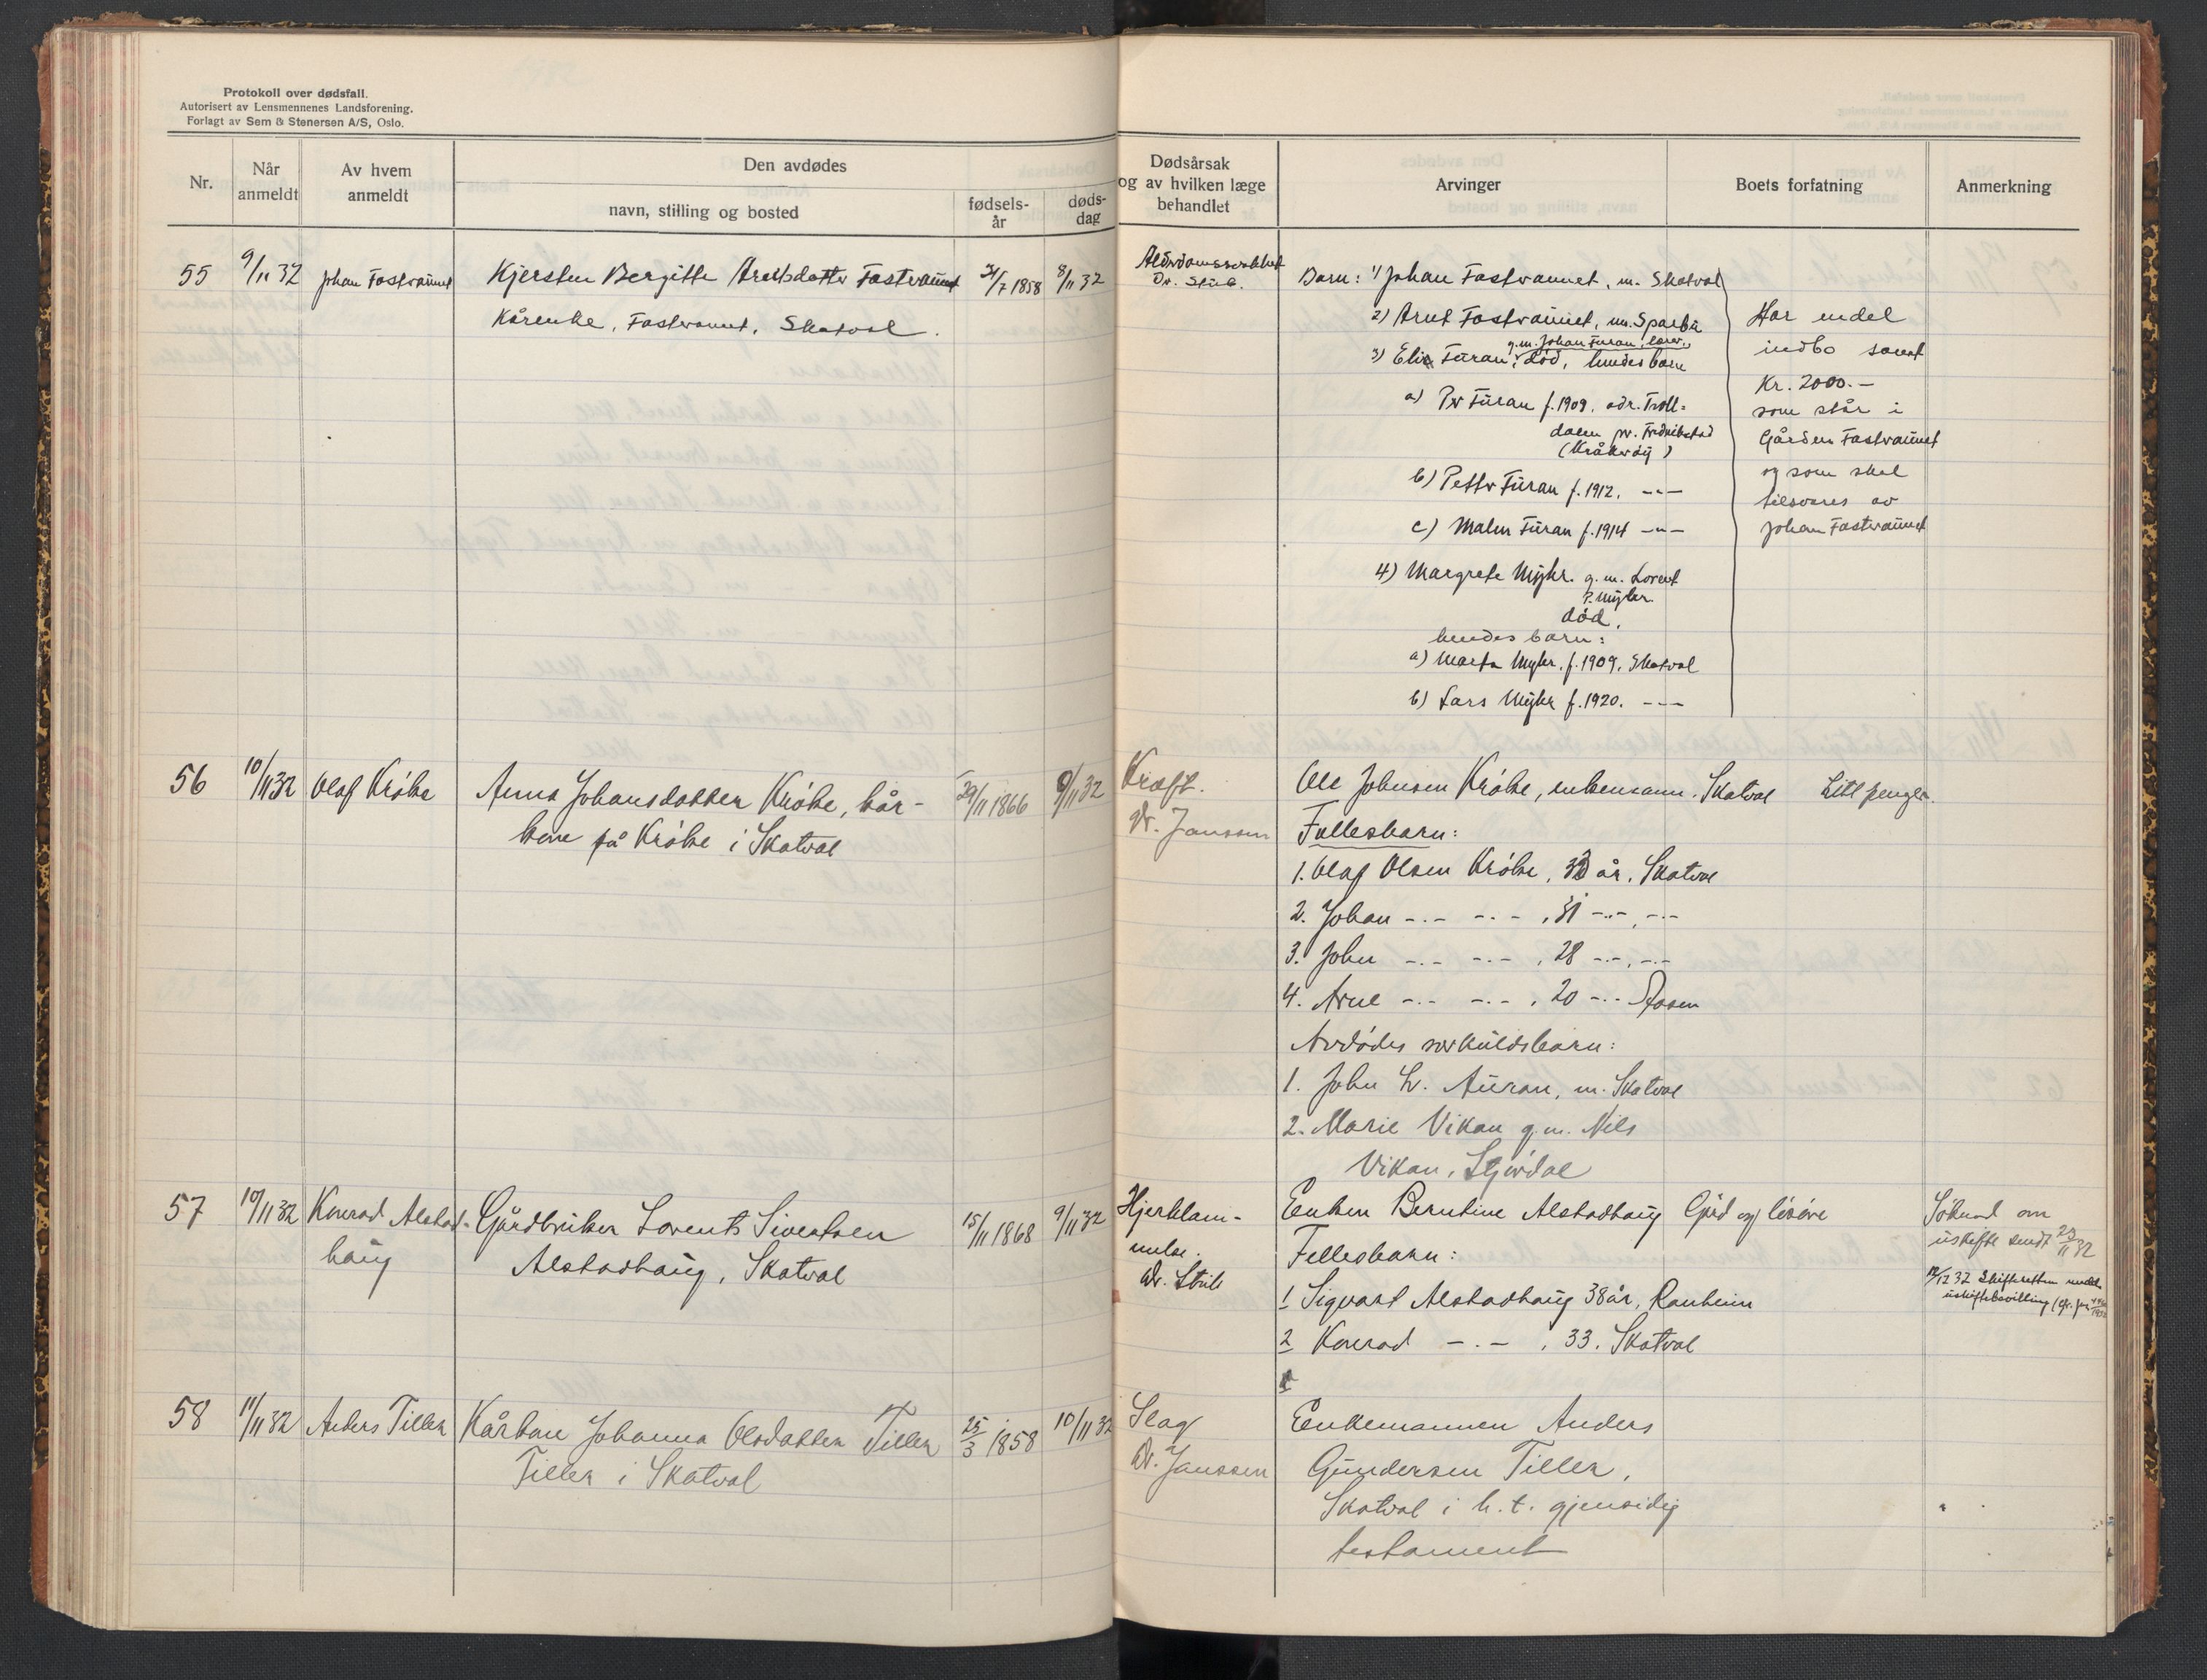 Protokoll over dødsfall.
Autorisert av Lensmennenes Landsforening.
Forlagt av Sem & Stenersen A/S, Oslo.
Nr.
Når anmeldt
Av hvem anmeldt
Den avdødes
navn, stilling og bosted
fødsels-år
døds-dag
Dødsårsak og av hvilken læge behandlet
Arvinger
Boets forfatning
Anmerkning
55
9/11 32
Johan Fastvannet
Kjersten Bergitte Arntsdatter Fastvannet
Kårenke, Fastvannet, Skatval.
/7 1858
8/11 32
Alderdomssvakhet
Dr. Stub.
Barn: 1) Johan Fastvannet, m. Skatval
2) Arnt Fastvannet, m. Sparbu
g.m. Johan Furan, lærer,
3) Elis Furan, død, hendes barn
a) Per Furan f. 1909, adr. Troll=
dalen pr. Fredrikstad
(Kråkerøy)
b) Petter Furan f. 1912. -"-
c) Malm Furan f. 1914 -"-
4) Margrete Myhr. g.m. Lorent
P. Myhr.
død.
hendes barn:
a) Marta Myhr, f. 1909, Skatval
b) Lars Myhr f. 1920. -"-
Har endel
indbo samt
Kr. 2000.-
som står i
Gården Fastvannet
og som skal
tilsvares av
Johan Fastvannet
56
10/11 32
Olaf Krøke
Anna Johansdatter Krøke, kår-
kone på Krøke i Skatval
29/11 1866
9/11 32
Kræft.
Dr. Janssen
Ole Johnsen Krøke, enkemann. Skatval
Fellesbarn:
1. Olaf Olsen Krøke, år, Skatval
2. Johan -.- -.- , 31 -.-, -.-
3. John -.- -.- , 28 -.-, -.-
4. Arne -.- -.- , 20 -.- Aasen
Avdødes særkuldsbarn:
1. John L. Auran, m. Skatval
2. Marie Vikan g.m. Nils
Vikan, Stjørdal
Litt penger.
57
10/11 32
Konrad Alstad-
haug
Gårdbruker Lorents Sivertsen
Alstadhaug, Skatval
15/11 1868
9/11 32
Hjertelam-
melse.
Dr. Stub
Enken Berntine Alstadhaug
Fellesbarn:
1 Sigvart Alstadhaug 38 år, Ranheim
2 Konrad -.- , 33. Skatval
Gård og løsøre
Søknad om
uskifte sendt 23/11 32
/12 32 Skifteretten medd.
uskiftebevilling
58
11/11 32
Anders Tiller
Kårkone Johanna Olsdatter Tiller
Tiller i Skatval
25/3 1858
10/11 32
Slag
Dr. Janssen
Enkemannen Anders
Gundersen Tiller,
Skatval i h.t. gjensidig
testament